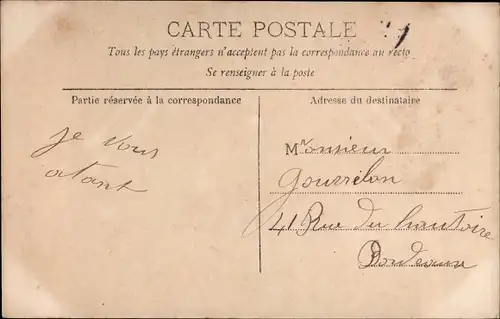 CARTE POSTALE
Tous les pays étrangers n'acceptent pas la correspondance au recto
Se renseigner à la poste
Partie réservée à la correspondance
Adresse du destinataire
je vous
atant
Monsieur
41 Rue du hautoire
Bordeaux